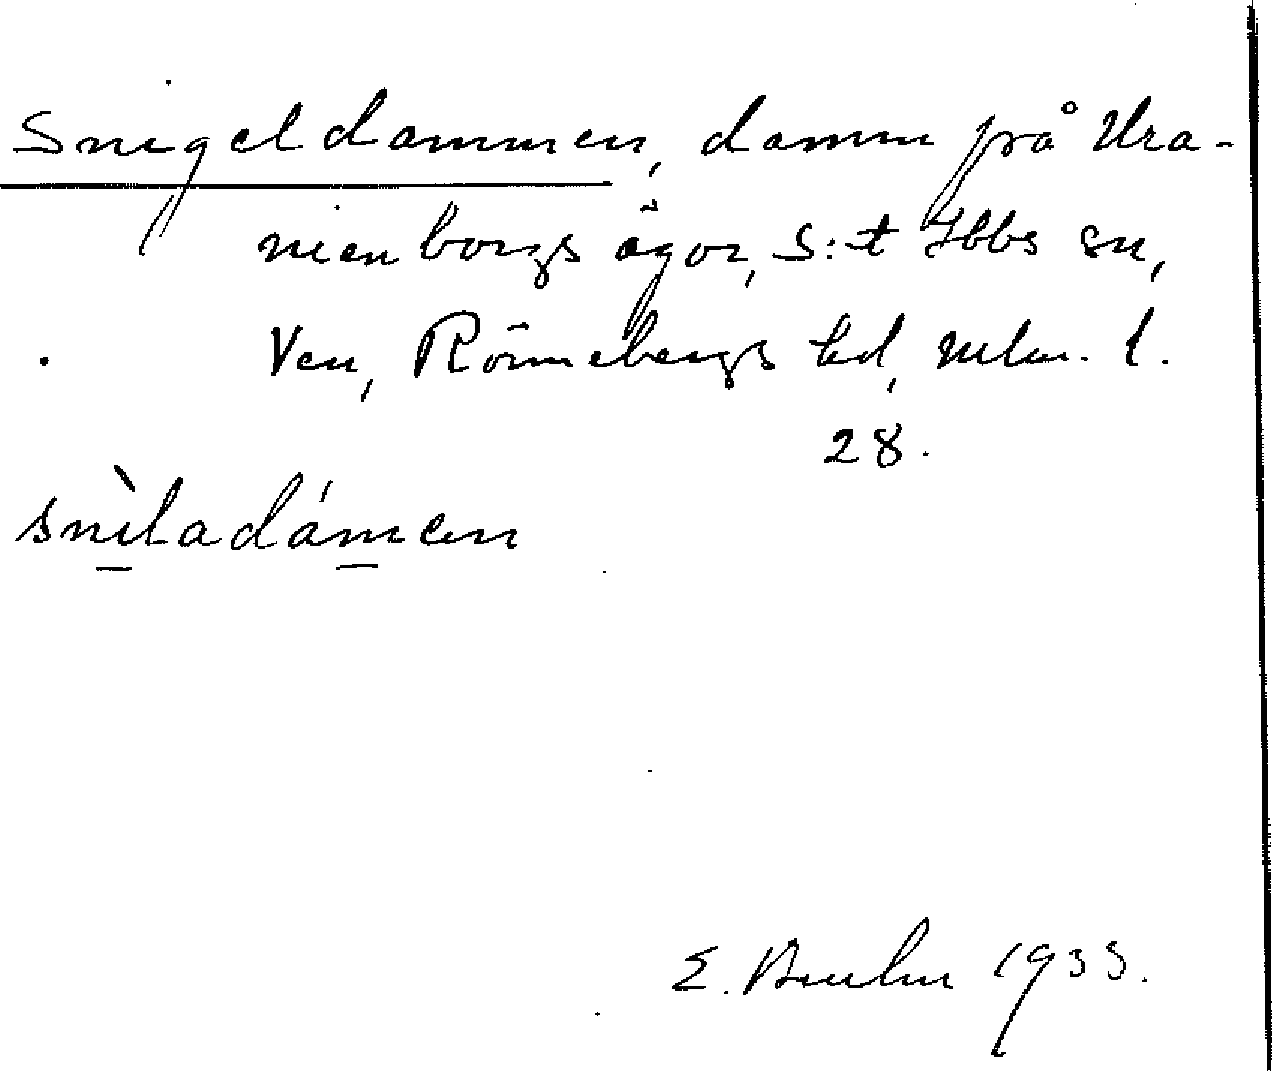 Snigeldammen, damm på Ura-
nienborgs ägor, S:t Ibbs sn,
Ven, Rönnebergs hd, Mlm. l.
28.
snìladámen
E. Bruhn 1933.